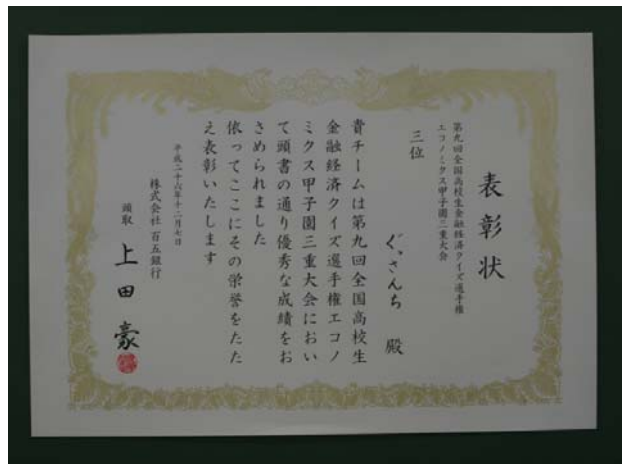 表彰状
第九回全国高校生金融経済クイズ選手権
エコノミクス甲子園三重大会
三位
ぐっさんち 殿
貴チームは第九回全国高校生
金融経済クイズ選手権エコノ
ミクス甲子園三重大会におい
て頭書の通り優秀な成績をお
さめられました
依ってここにその栄誉をたた
え表彰いたします
平成二十六年十二月七日
株式会社 百五銀行
頭取 上田 豪